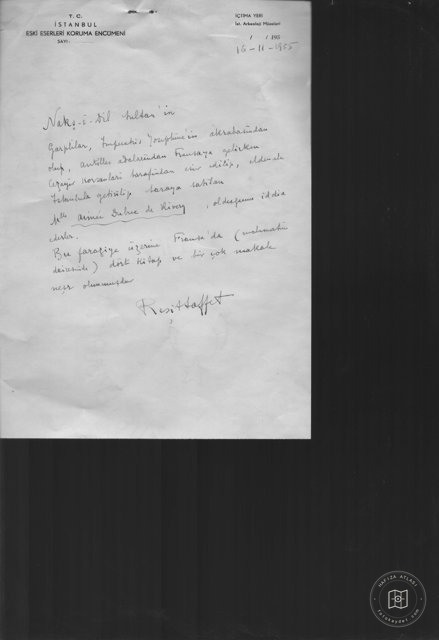 T. C.
İSTANBUL
ESKİ ESERLERİ KORUMA ENCÜMENİ
SAYI:
İÇTİMA YERİ
İst. Arkeoloji Müzeleri
/ / 195
16-11-1955
Nakş-i-Dil Sultan'ın
Garplılar, İmparatoriçe Josephine'in akrabasından
olup, antiller adalarından Fransaya gelirken
Cezayir korsanları tarafından esir edilip,
İstanbula getirilip saraya satılan
Mlle Aimée Dubuc de Rivery olduğunu iddia
ederler.
Bu faraziye üzerine Fransa'da
dört kitap ve bir çok makale
neşr olunmuştur
Reşit Saffet
HAFIZA ATLASI